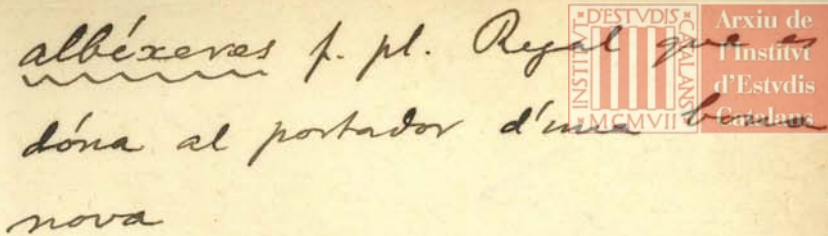 albéxeres f. pl. Regal que es
dóna al portador d'una bona
nova
INSTITVT D'ESTVDIS CATALANS
MCMVII
Arxiu de
l'Institvt
d'Estvdis
Catalans